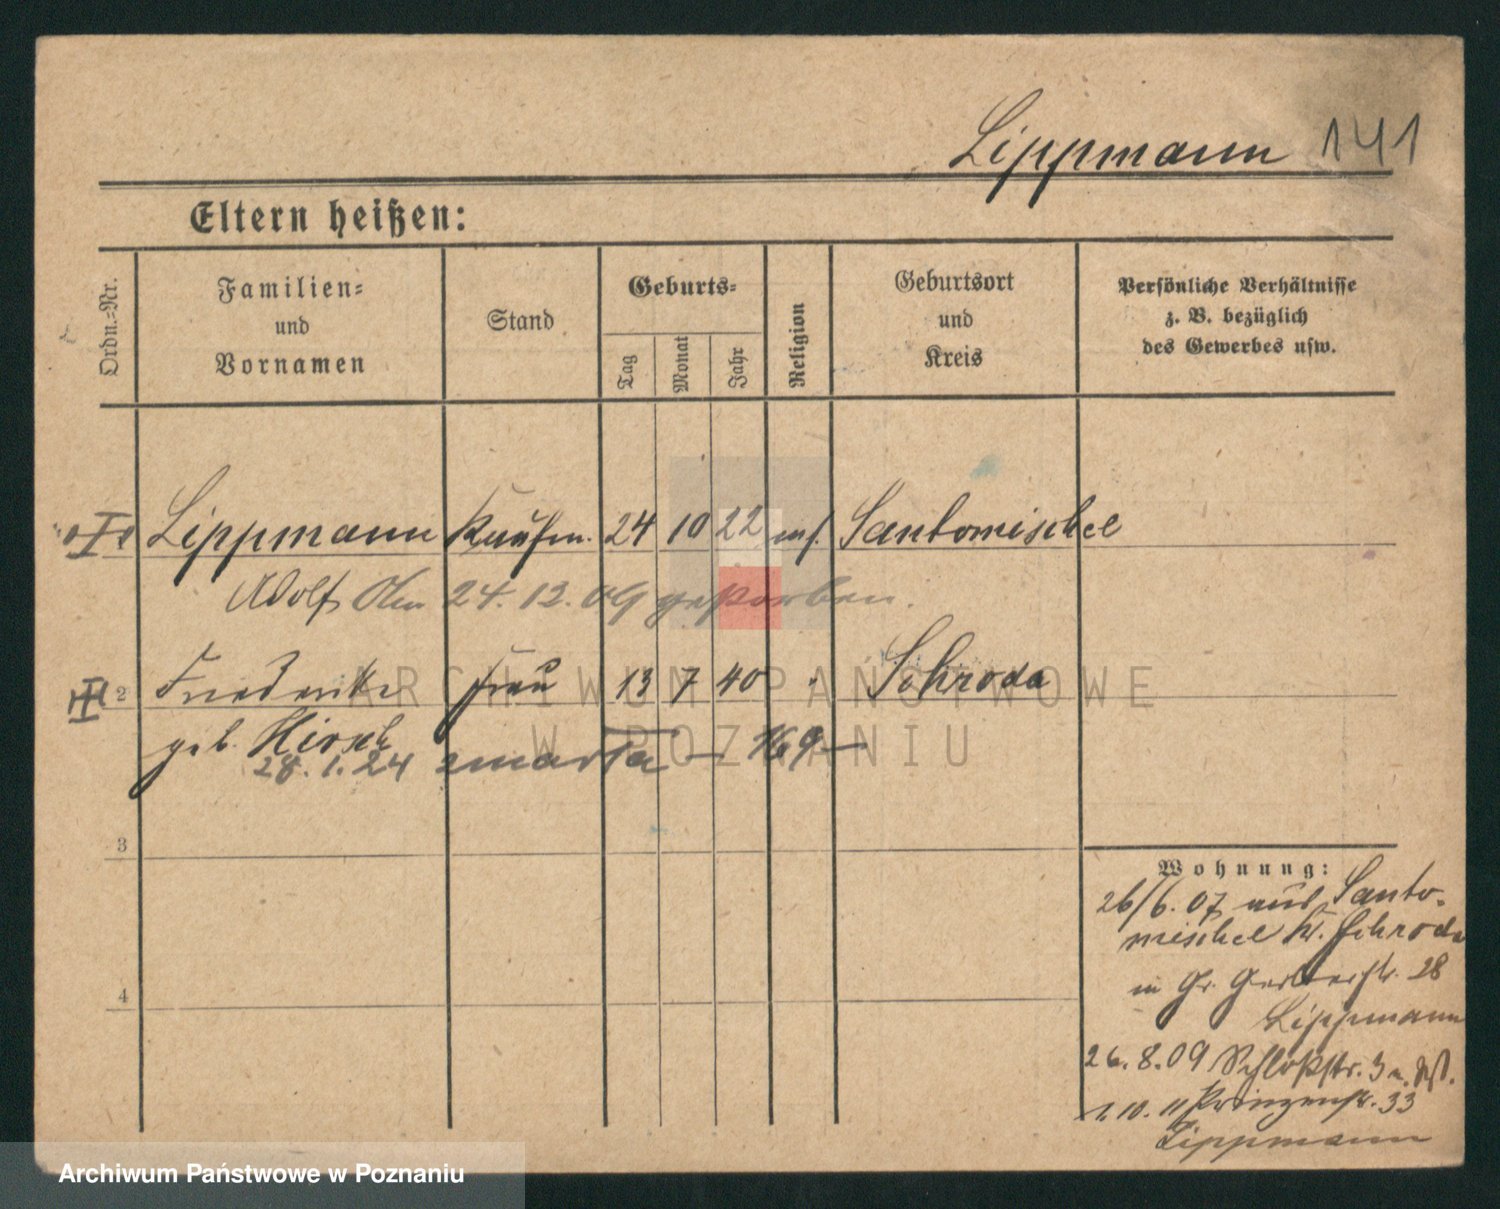 Lippmann 141
Eltern heißen:
Ordn.-Nr.
Familien-
und
Vornamen
Stand
Geburts-
Tag
Monat
Jahr
Religion
Geburtsort
und
Kreis
Persönliche Verhältnisse
z. B. bezüglich
des Gewerbes usw.
Lippmann Kaufm. 24 10 22 ms. Santomischel
Adolf Am 24. 12. 09 gestorben.
2 Friederike Frau 13 7 40 " Schroda
geb. Hirsch
28. 1. 24 zmarła — 169 —
3
4
Wohnung:
26/6. 07 aus Santo-
mischel Kr. Schroda
in Gr. Gerberstr. 28
Lippmann
26. 8. 09 Schloßstr. 3
1. 10. 11 Prinzenstr. 33
Lippmann
ARCHIWUM PAŃSTWOWE
W POZNANIU
Archiwum Państwowe w Poznaniu